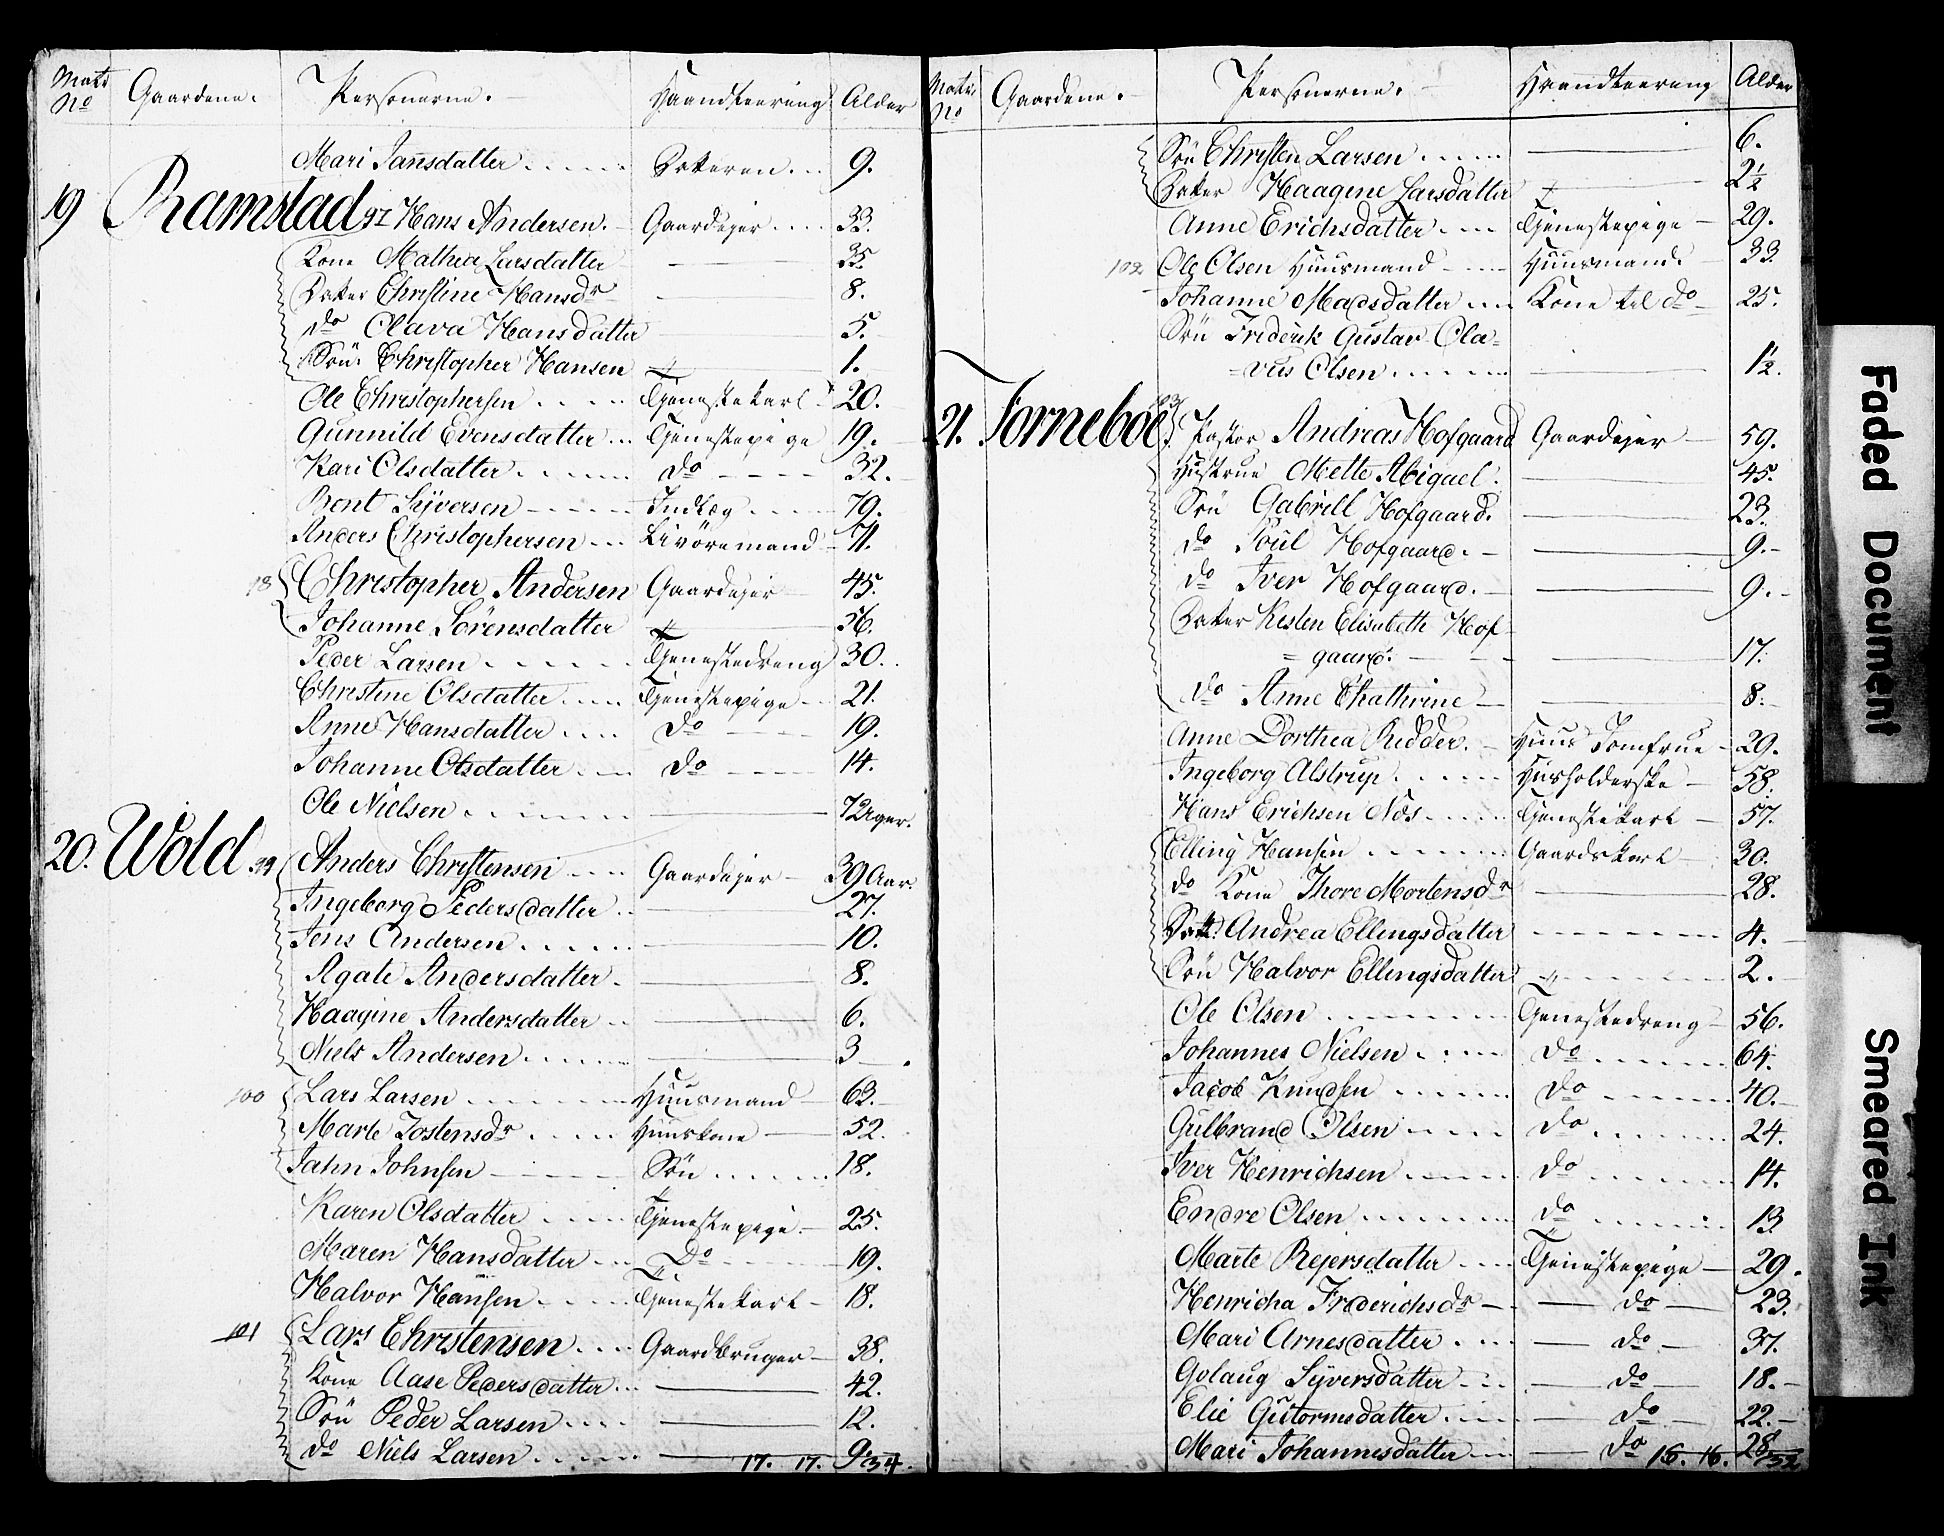 Matr No Gaardene. Personerne. Haandteering Alder
Mari Jansdatter Datteren 9.
19 Ramstad 97 Hans Andersen. Gaardejer 33.
Kone Mathia Larsdatter 35.
Datter Christine Hansdr 8.
do Olava Hansdatter 5.
Sön Christopher Hansen 1.
Ole Christophersen Tjenestekarl 20.
Gunnild Evensdatter Tjenestepige 19.
Kari Olsdatter do 32.
Bent Syversen Indlæg 79.
Anders Christophersen Livöremand 71.
98 Christopher Andersen Gaardejer 45.
Johanne Sörensdatter 56.
Peder Larsen Tjenestedreng 30.
Christine Olsdatter Tjenestepige 21.
Anne Hansdatter do 19.
Johanne Olsdatter do 14.
Ole Nielsen 72 Uger.
20. Wold. 99 Anders Christensen Gaardejer 39 Aar.
Ingeborg Pedersdatter 27.
Jens Andersen 10.
Agate Andersdatter 8.
Haagine Andersdatter 6.
Niels Andersen 3
100 Lars Larsen Huusmand 63.
Marte Jostensdr Huuskone 52.
Jahn Johnsen Sön 18.
Karen Olsdatter Tjenestepige 25.
Maren Hansdatter Do 19.
Halvor Hansen Tjenestekarl 18.
101 Lars Christensen Gaardbruger 38.
Kone Aase Pedersdatter 42.
Sön Peder Larsen 12.
do Niels Larsen 9.
17. 17. 34.
Matr. No Gaardene. Personerne. Haandteering Alder
Sön Christen Larsen 6.
Datter Haagine Larsdatter 2 1/2
Anne Erichsdatter Tjenestepige 29.
102 Ole Olsen Huusmand Huusmand 33.
Johanne Madsdatter Kone til do 25.
Sön Friderik Gustav Ola=
=vus Olsen 1 1/2.
21. Forneboe 103 Pastor Andreas Hofgaard Gaardejer 59.
Hustrue Mette Abigael. 45.
Sön Gabriell Hofgaard. 23.
do Poul Hofgaard. 9.
do Iver Hofgaard. 9.
Datter Kesten Elisabeth Hof
=gaard. 17.
do Anne Chathrine 8.
Anne Dorthea Ridder. Huus Jomfrue 29.
Ingeborg Alstrup. Huusholderske 58.
Hans Erichsen Næs Tjenestekarl 57.
Elling Hansen Gaardskarl 30.
do Kone Thore Mortensdr 28.
Datt. Andrea Ellingsdatter 4.
Sön Halvor Ellingsdatter 2.
Ole Olsen Tjenestedreng 56.
Johannes Nielsen do 64.
Jacob Knudsen do 40.
Gulbrand Olsen do 24.
Iver Henrichsen do 14.
Endre Olsen do 13
Marte Rejersdatter Tjenestepige 29.
Henricha Friderichsdr do 23.
Mari Arnesdatter do 37.
Golaug Syversdatter do 18.
Elie Gutormsdatter do 22.
Mari Johannesdatter do 28.
16. 16. 32
Faded Document
Smeared Ink